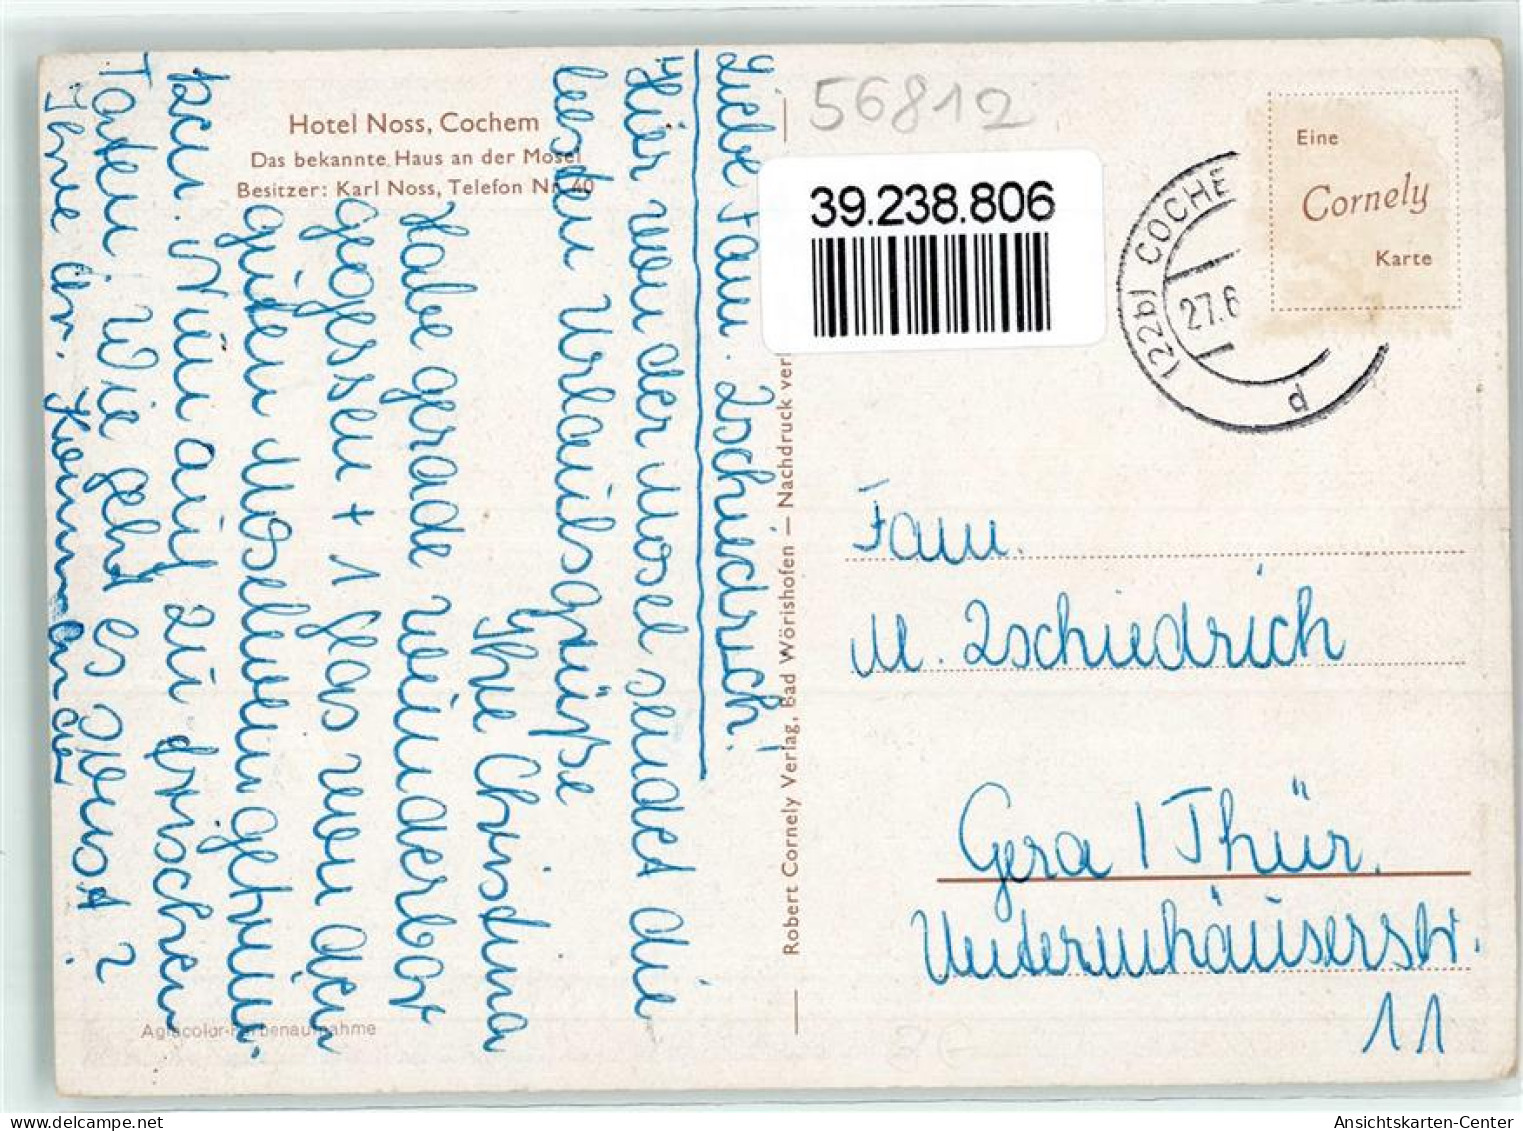 Hotel Noss, Cochem
Das bekannte Haus an der Mosel
Besitzer: Karl Noss, Telefon Nr. 40
Liebe Fam. Zschiedrich!
Hier von der Mosel sendet die
besten Urlaubsgrüße
Ihre Christina
Habe gerade wunderbar
gegessen + 1 Glas von den
guten Moselwein getrun-
ken. Nun auf zu frischen
Taten. Wie geht es sonst?
Ihre Chr.
Agfacolor-Farbenaufnahme
Robert Cornely Verlag, Bad Wörishofen — Nachdruck ver
56812
39.238.806
(22b) COCHE
27.6
d
Eine
Cornely
Karte
Fam.
M. Zschiedrich
Gera / Thür.
Unternhäuserstr.
11
Ansichtskarten-Center